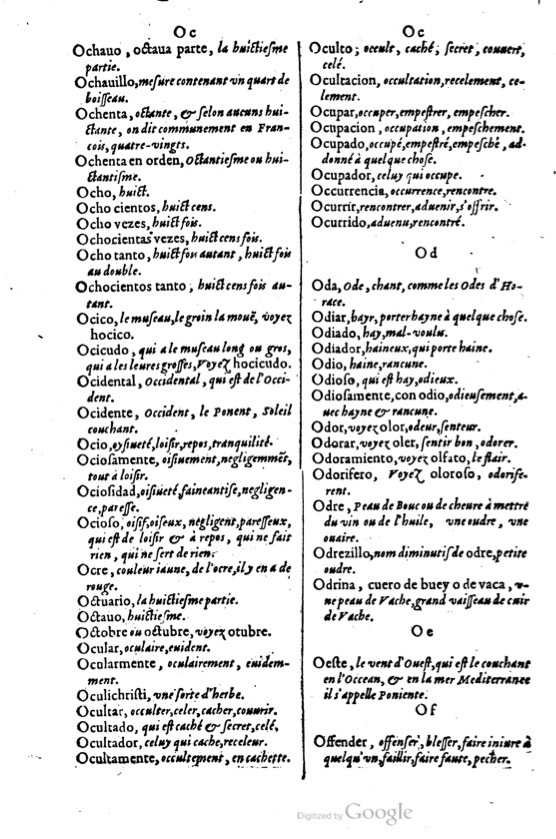 Oc
Ochauo, octaua parte, la huictiesme
partie.
Ochauillo, mesure contenant vn quart de
boisseau.
Ochenta, octante, & selon aucuns hui-
ctante, on dit communement en Fran-
cois, quatre-vingts.
Ochenta en orden, Octantiesme ou hui-
ctantisme.
Ocho, huict.
Ocho cientos, huict cens.
Ocho vezes, huict fois.
Ochocientas vezes, huict cens fois.
Ocho tanto, huict fois autant, huict fois
au double.
Ochocientos tanto, huict cens fois au-
tant.
Ocico, le museau, le groin la mouë, voyez
hocico.
Ocicudo, qui a le museau long ou gros,
qui a les leures grosses, Voyez hocicudo.
Ocidental, Occidental, qui est de l'Occi-
dent.
Ocidente, Occident, le Ponent, Soleil
couchant.
Ocio, oysiueté, loisir, repos, tranquilité.
Ociosamente, oisiuement, negligemmẽt,
tout à loisir.
Ociosidad, oisiueté, faineantise, negligen-
ce, paresse.
Ocioso, oisif, oiseux, negligent, paresseux,
qui est de loisir & à repos, qui ne fait
rien, qui ne sert de rien.
Ocre, couleur iaune, de l'ocre, il y en a de
rouge.
Octuario, la huictiesme partie.
Octauo, huictiesme.
Octobre ou octubre, voyez otubre.
Ocular, oculaire, euident.
Ocularmente, oculairement, euidem-
ment.
Oculichristi, vne sorte d'herbe.
Ocultar, occulter, celer, cacher, couurir.
Ocultado, qui est caché & secret, celé.
Ocultador, celuy qui cache, receleur.
Ocultamente, occultement, en cachette.
Oc
Oculto; occult, caché; secret, couuert,
celé.
Ocultacion, occultation, recelement, ce-
lement.
Ocupar, occuper, empestrer, empescher.
Ocupacion, occupation, empeschement.
Ocupado, occupé, empestré, empesché, ad-
donné à quelque chose.
Ocupador, celuy qui occupe.
Occurrencia, occurrence, rencontre.
Ocurrir, rencontrer, aduenir, s'offrir.
Ocurrido, aduenu, rencontré.
Od
Oda, Ode, chant, comme les Odes d'Ho-
race.
Odiar, hayr, porter hayne à quelque chose.
Odiado, hay, mal-voulu.
Odiador, haineux, qui porte haine.
Odio, haine, rancune.
Odioso, qui est hay, odieux.
Odiosamente, con odio, odieusement, a-
uec hayne & rancune.
Odor, voyez olor, odeur, senteur.
Odorar, voyez oler, sentir bon, odorer.
Odoramiento, voyez olfato, le flair.
Odorifero, Voyez oloroso, odorife-
rent.
Odre, Peau de Bouc ou de cheure à mettre
du vin ou de l'huile, vne oudre, vne
ouaire.
Odrezillo, nom diminutif de odre, petite
oudre.
Odrina, cuero de buey o de vaca, v-
ne peau de Vache, grand vaisseau de cuir
de Vache.
Oe
Oeste, le vent d'Ouest, qui est le couchant
en l'Occean, & en la mer Mediterranee
il s'appelle Poniente.
Of
Offender, offenser, blesser, faire iniure à
quelqu'vn, faillir, faire faute, pecher.
Digitized by Google